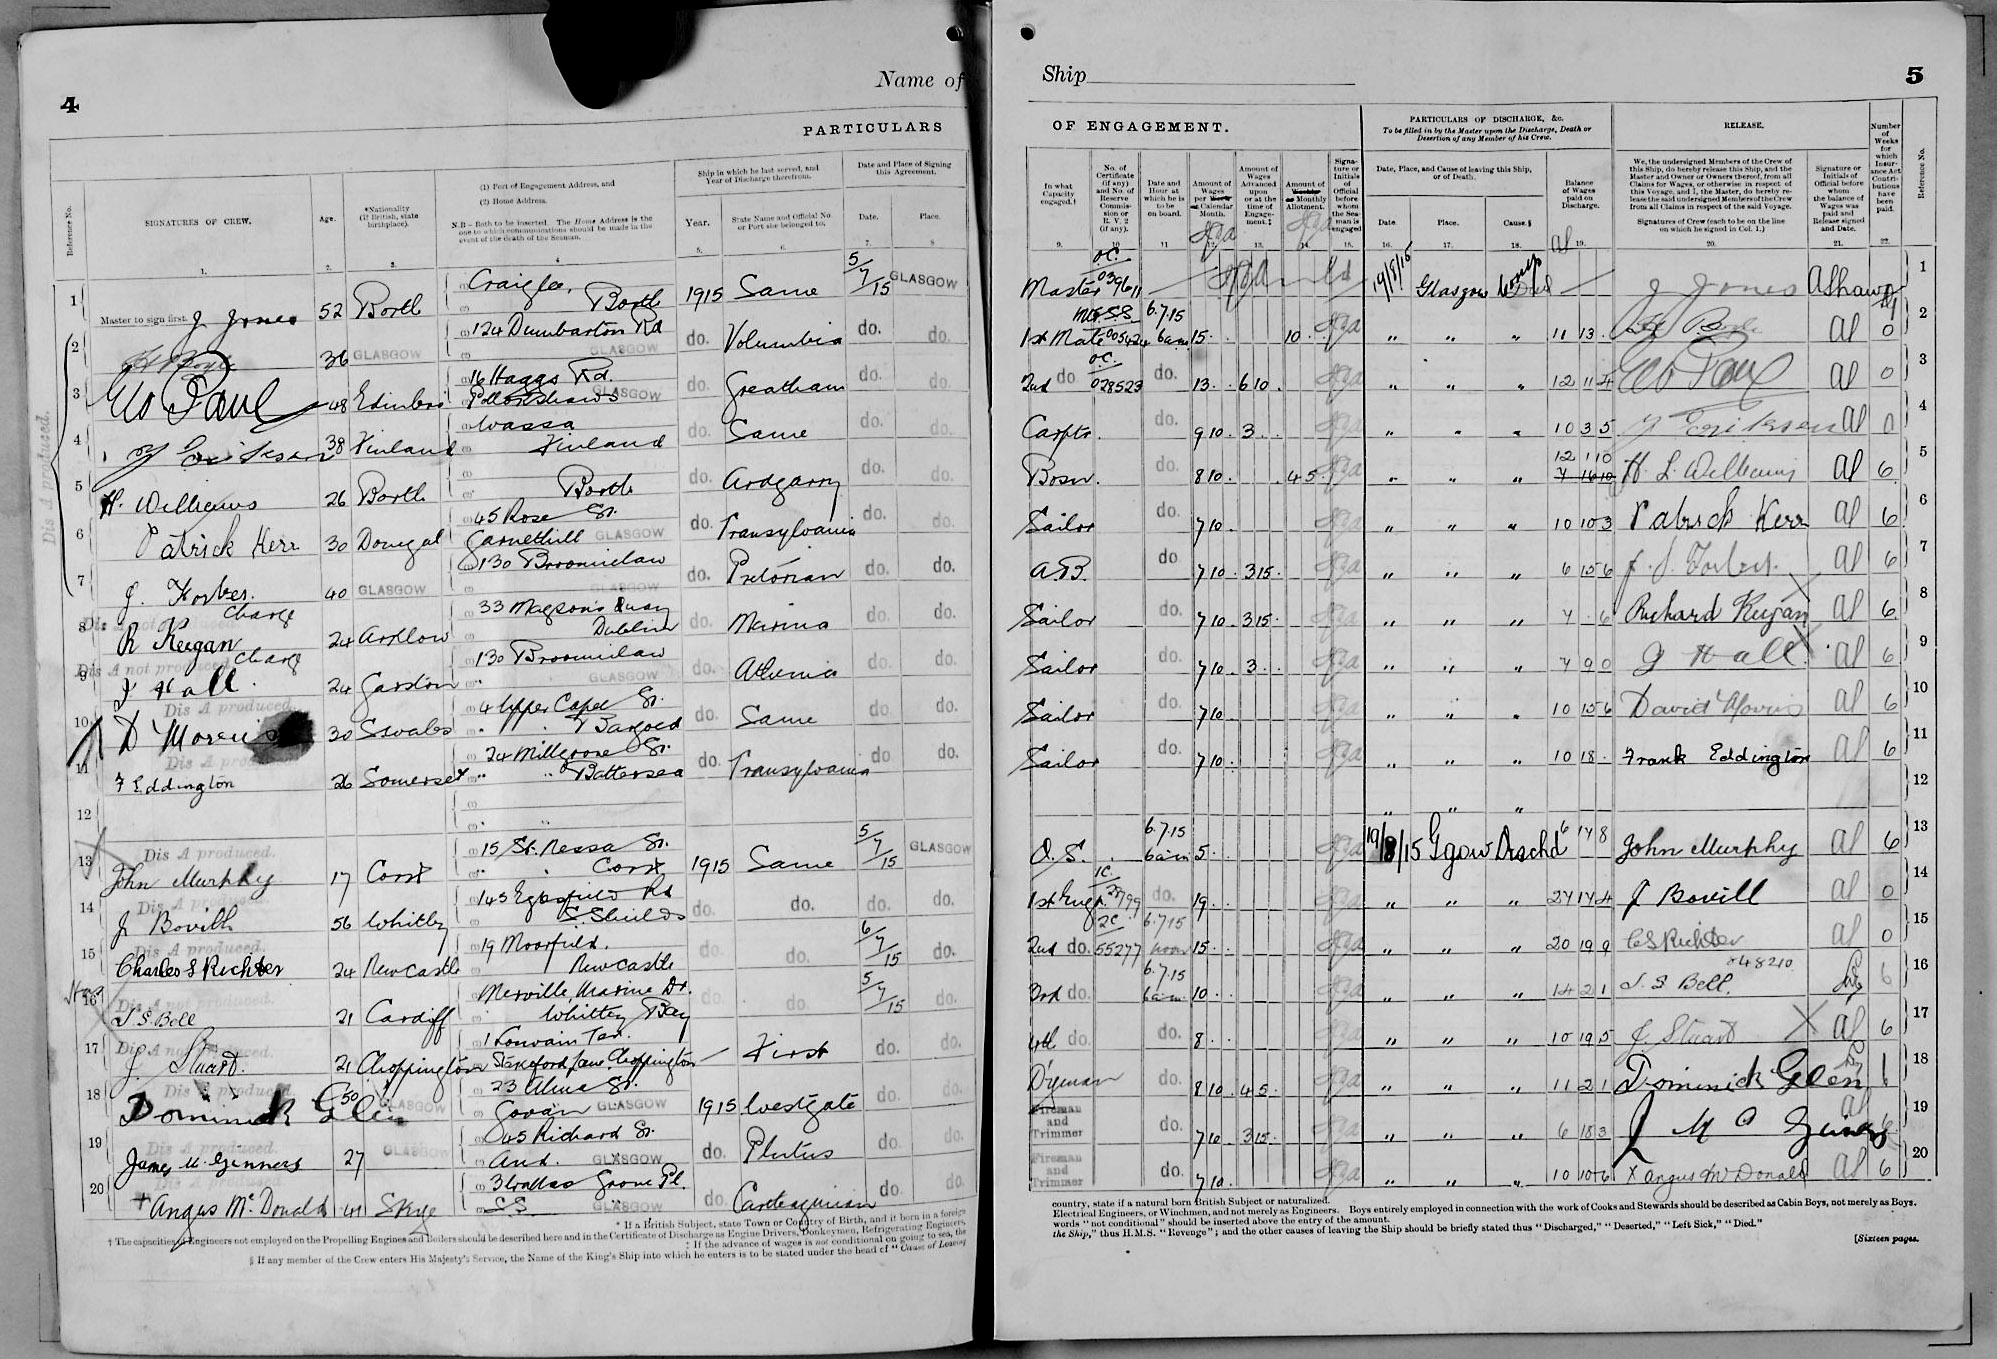 4
Name of
PARTICULARS
Reference No.
SIGNATURES OF CREW.
Age.
*Nationality (if British, state birthplace).
(1) Port of Engagement Address, and
(2) Home Address.
N.B – Both to be inserted. The Home Address is the one to which communications should be made in the event of the death of the Seaman.
Ship in which he last served, and Year of Discharge therefrom.
Year.
State Name and Official No. or Port she belonged to,
Date and Place of Signing this Agreement.
Date.
Place.
1. 2. 3. 4 5. 6. 7. 8
Dis A produced.
1 Master to sign first. J Jones 52 Borth Craiglea, Borth 1915 Same 5/7/15 GLASGOW
2 36 GLASGOW 124 Dumbarton Rd GLASGOW do. Volumbia do. do.
3 Geo Paul 48 Edinboro 16 Haggs Rd. Pollokshaws GLASGOW do. Greatham do. do.
4 Eriksen 38 Finland Wassa Finland do. Same do. do.
5 H. Williams 26 Borth Borth do. Ardgarry do. do.
6 Patrick Kerr 30 Donegal 45 Rose St. Garnethill GLASGOW do. Transylvania do. do.
7 J. Forbes. 40 GLASGOW 130 Broomielaw GLASGOW do. Pretorian do. do.
Charge
8 Dis A not produced R Keegan 24 Arklow 33 Magson's Quay Dublin do. Marina do. do.
Charge
9 Dis A not produced J Hall. 24 Garston 130 Broomielaw GLASGOW do. Athenia do. do.
10 Dis A produced. D Morris 30 Swales 4 Upper Capel St. Bargoed do. Same do. do.
11 Dis A produced F Eddington 26 Somerset 24 Millgrove St. Battersea do. Transylvania do do.
12
13 Dis A produced. John Murphy 17 Cork 15 St. Nessa St. Cork 1915 Same 5/7/15 GLASGOW
14 Dis A produced. J Bovill 56 Whitby 145 Egerfield Rd S. Shields do. do. do. do.
15 Dis A produced. Charles S Richter 24 Newcastle 19 Moorfield. Newcastle do. do. 6/7/15 do.
16 Dis A not produced. J S. Bell 21 Cardiff Merville, Marine Dr. Whitley Bay do. do. 5/7/15 do.
17 Dis A not produced. J. Stuart. 21 Choppington 1 Louvain Ter. Choppington – First do. do.
18 Dis A produced. Dominick Glen 50 GLASGOW 23 Alma St. Govan GLASGOW 1915 Westgate do. do.
19 Dis A produced. James Mc Ginness 27 GLASGOW 45 Richard St. And. GLASGOW do. Plutus do. do.
20 Dis A produced + Angus Mc Donald 44 Skye 3 Wallace Grove Pl. S.S. GLASGOW do. Carthaginian do. do.
* If a British Subject, state Town or Country of Birth, and if born in a foreign
† The capacities of Engineers not employed on the Propelling Engines and Boilers should be described here and in the Certificate of Discharge as Engine Drivers, Donkeymen, Refrigerating Engineers,
‡ If the advance of wages is not conditional on going to sea, the
§ If any member of the Crew enters His Majesty's Service, the Name of the King's Ship into which he enters is to be stated under the head of "Cause of Leaving
Ship
5
OF ENGAGEMENT.
PARTICULARS OF DISCHARGE, &c.
To be filled in by the Master upon the Discharge, Death or Desertion of any Member of his Crew.
RELEASE.
Number of Weeks for which Insurance Act Contributions have been paid.
Reference No.
In what Capacity engaged.†
No. of Certificate (if any) and No. of Reserve Commission or R. V. 2 (if any)
Date and Hour at which he is to be on board.
Amount of Wages per Week or Calendar Month.
Amount of Wages Advanced upon or at the time of Engagement.‡
Amount of Weekly or Monthly Allotment.
Signature or Initials of Official before whom the Seaman is engaged
Date, Place, and Cause of leaving this Ship, or of Death.
Date.
Place.
Cause.§
Balance of Wages paid on Discharge.
We, the undersigned Members of the Crew of this Ship, do hereby release this Ship, and the Master and Owner or Owners thereof, from all Claims for Wages, or otherwise in respect of this Voyage, and I, the Master, do hereby release the said undersigned Members of the Crew from all Claims in respect of the said Voyage.
Signatures of Crew (each to be on the line on which he signed in Col. 1.)
Signature or Initials of Official before whom the balance of Wages was paid and Release signed and Date.
9. 10 11 12. 13. 14. 15. 16. 17. 18. 19. 20. 21. 22.
Master O.C. 039611 19/8/15 Glasgow J Jones A Shaw 1
1st Mate 00542 6.7.15 6am 15 10 " " " 11 13 . Al 0 2
2nd do O.C. 028523 do. 13 . 6 10 " " " 12 11 4 Geo Paul Al 0 3
Carptr. do. 9 10 . 3 . . " " " 10 3 5 Eriksen Al 0 4
Bosn. do. 8 10 . 4 5 . " " " 12 1 10 7 16 10 H. L. Williams Al 6 5
Sailor do. 7 10 . " " " 10 10 3 Patrick Kerr Al 6 6
A.B. do 7 10 . 3 15 . " " " 6 15 6 J. J. Forbes. Al 6 7
Sailor do. 7 10 . 3 15 . " " " 7 – 6 Richard Keegan Al 6 8
Sailor do. 7 10 . 3 . . " " " 7 9 0 J Hall. Al 6 9
Sailor do. 7 10 " " " 10 15 6 David Morris Al 6 10
Sailor do. 7 10 . " " " 10 18 . Frank Eddington Al 6 11
" " " 12
O.S. 6.7.15 6am 5 . 19/8/15 Ggow Dischd 6 17 8 John Murphy Al 6 13
1st Eng. 1C. 2799 do. 19 . " " " 27 17 4 J Bovill Al 0 14
2nd do. 2C 55277 6.7.15 noon 15 . . " " " 20 19 9 C S Richter Al 0 15
3rd do. 6.7.15 6am. 10 . . " " " 14 2 1 J. S Bell. 048210 6 16
4th do. do. 8 . . " " " 10 19 5 J. Stuart X Al 6 17
Dyman do. 8 10 . 4 5 . " " " 11 2 1 Dominick Glen 18
Fireman and Trimmer do. 7 10 . 3 15 . " " " 6 18 3 J Mc Ginness Al 6 19
Fireman and Trimmer do. 7 10 . " " " 10 10 6 X Angus Mc Donald Al 6 20
country, state if a natural born British Subject or naturalized.
Electrical Engineers, or Winchmen, and not merely as Engineers. Boys entirely employed in connection with the work of Cooks and Stewards should be described as Cabin Boys, not merely as Boys.
words "not conditional" should be inserted above the entry of the amount.
the Ship," thus H.M.S. "Revenge"; and the other causes of leaving the Ship should be briefly stated thus "Discharged," "Deserted," "Left Sick," "Died."
[Sixteen pages.